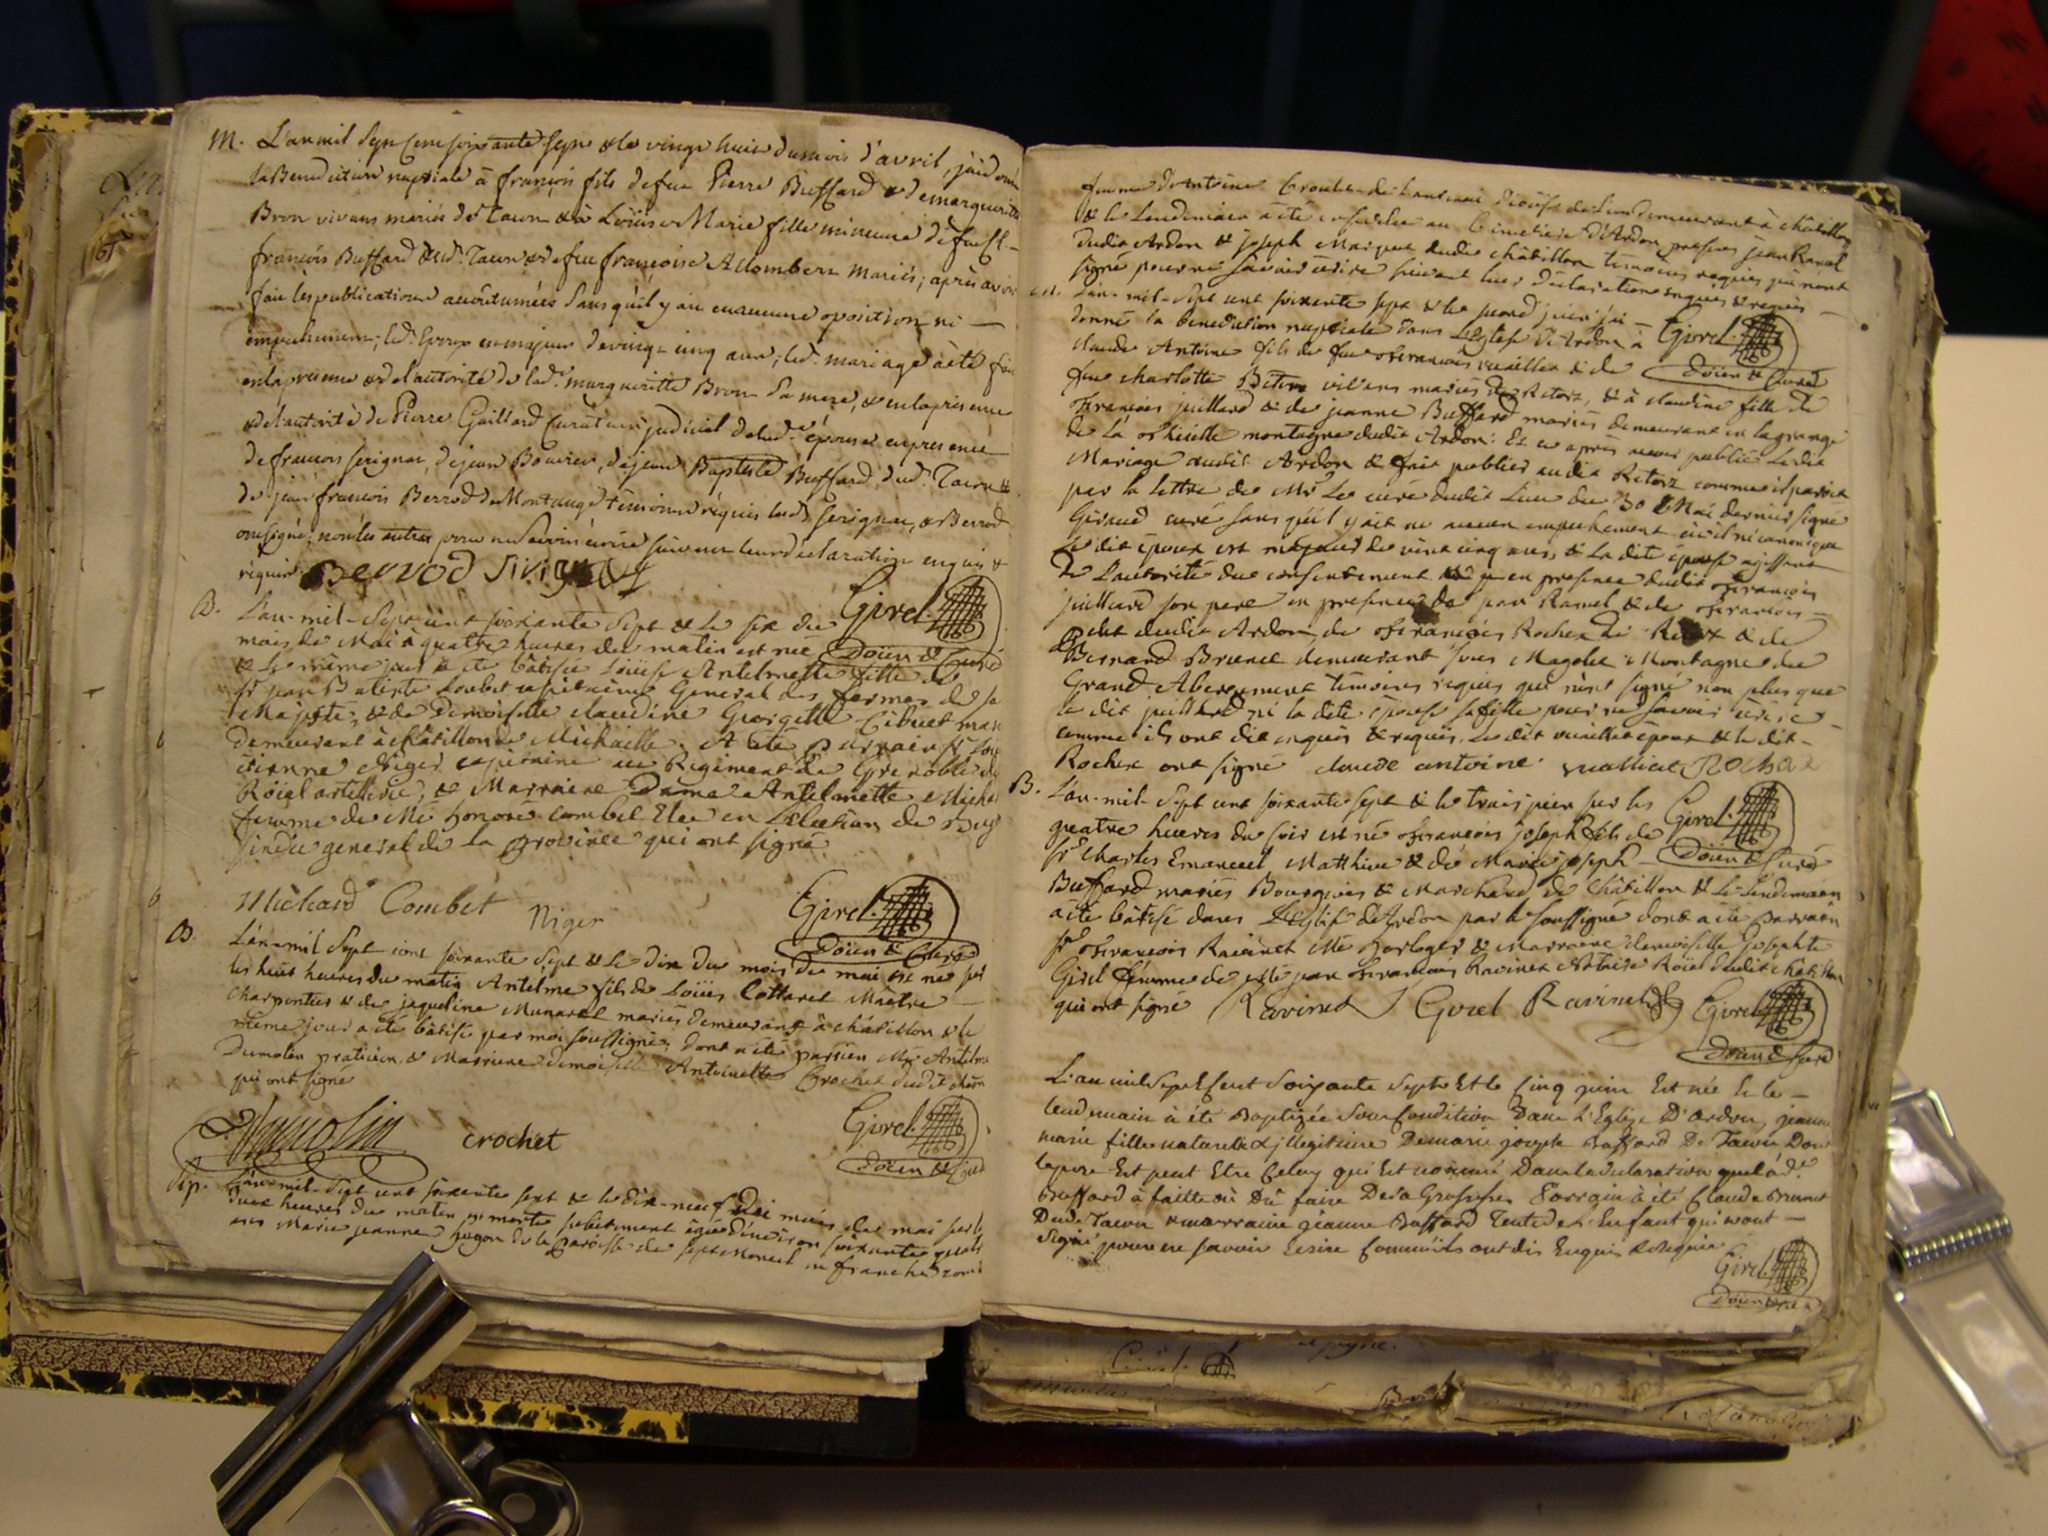 M. L'an mil sept cent soixante sept & le vingt huit du mois d'avril, j'ai donné
la Benediction nuptiale à françois fils de feu Pierre Buffard & de marguerite
Bron vivans mariés de Tacon & à Loüise Marie fille mineure de feu
françois Buffard dud. Tacon & de feue françoise Allombert mariés; après avoir
fait les publications accoutumées sans qu'il y ait eu aucune oposition ni
empechement; led. Epoux est majeur de vingt cinq ans; led. mariage a été fait
en la presence & de l'autorité de lad. marguerite Bron sa mere, & en la presence
& de l'autorité de Pierre Gaillard Curateur judicial de lad. épouse en presence
de francois serignat, de jean Bouvier, de jean Baptiste Buffard dud. Tacon &
de jean francois Berrod de Montange témoins réquis led. serignat, & Berrod
ont signé, non les autres pour ne savoir écrire suivant leur déclaration enquis &
réquis Berrod
Girel
Doïen & Curé
B. L'an-mil-Sept cent soixante Sept & Le six du
mois de Mai à quatre heures du matin est née
& Le même jour a été bâtisée Loüise Antelmette fille de
Sr jean Batiste Loubet capitaine General des fermes de sa
Majesté, & de Demoiselle claudine Georgette Cibuet mariés
demeurant à châtillon de Michaille. A été parrain Sr
etienne Niger capitaine au Regiment de Grenoble du
Roïal artillerie, & Marraine Dame Antelmette Michard
femme de Me honoré combet Elu en L'election de Bugey
sindic general de la province qui ont signé
Michard Combet Niger
Girel
Doïen & Curé
B L'an-mil Sept cent soixante Sept & Le dix du mois de mai est né sur
les huit heures du matin Antelme fils de Loüis Cottarel Maître
charpentier & de jaqueline Munaret mariés demeurant à châtillon & le
même jour a été bâtisé par moi soussigné, dont a été parrien Me Antelme
Dumolin praticien & Marriene demoiselle Antoinette Crochet dudit châtillon
qui ont signé
Dumolin crochet
Girel
Doïen & Curé
Sep. L'an-mil-Sept cent soixante sept & le dix-neuf du mois de mai sur les
deux heures du matin est morte subitement agée d'environ soixante quatre
ans Marie jeanne hugon de la Paroisse de sept Moncel en franche comté
femme d'Antoine diocese de Lion demeurant à châtillon
& le Lendemain a été ensevelie au Cimetiere d'Ardon presens jean Ramel
dudit Ardon & joseph Marquet dudit châtillon témoins requis qui n'ont
signé pour ne savoir écrire suivant leur déclaration enquis & requis
Girel
Doïen & Curé
L'an-mil-Sept cent soixante sept & le second juin j'ai
donné la benediction nuptiale dans L'eglise d'Ardon à
claude Antoine fils de feu francois vuaillat & de
feue charlotte vivans mariés de Retorz, & à claudine fille de
francois juilliard & de jeanne Buffard mariés demeurant en la grange
de La montagne dudit Ardon: Et ce après avoir publié Ledit
Mariage audit Ardon & fait publier audit Retorz comme il paroit
par la lettre de Mr Le curé dudit Lieu du 30 Mai dernier signé
Giraud curé sans qu'il y ait eu aucun empechement civil ni canonique
Le dit époux est majeur de vint cinq ans, & La dite épouse agissant
de L'autorité du consentement & en presence dudit francois
juilliard son pere en presence de jean Ramel & de francois
dudit Ardon, de francois Rochex de Retorz & de
Bernard Brunet demeurant sous Magolet Montagne du
Grand Abergement témoins requis qui n'ont signé non plus que
Le dit juilliard ni la dite épouse sa fille pour ne savoir écrire
comme ils ont dit enquis & requis, Le dit vuaillat époux & le dit
Rochex ont signé claude antoine vualliat Rochax
Girel
Doïen & Curé
B. L'an-mil-Sept cent soixante sept & le trois juin sur les
quatre heures du soir est né francois joseph fils de
Sr charles Emanuel Matthieu & de Marie joseph
Buffard mariés Bourgeois & Marchand de châtillon & Le Lendemain
a été bâtisé dans L'eglise d'Ardon par le soussigné dont a été parrain
Sr francois Ravinet Me horloger & Marraine demoiselle josephte
Girel femme de Me jean francois Ravinet Notaire Roïal dudit châtillon
qui ont signé Ravinet J Girel Ravinet
Girel
Doïen & Curé
L'an mil Sept Cent Soixante Sept Et le Cinq juin Est née Et le
lendemain à été Baptizée Sous Condition Dans L'Eglize D'ardon, jeanne
marie fille naturelle & illegitime De marie joseph Buffard De Tacon Dont
le pere Est peut Etre Celuy qui Est nommé Dans la declaration que lad.e
Buffard à faitte où Dû faire De sa Grossesse Parrain à été Claude Brunet
Dud. Tacon & marraine jeanne Buffard Tante de L'Enfant qui n'ont
Signé pour ne savoir Ecrire Comm'ils ont dit Enquis & Requis
Girel
Doïen & Curé